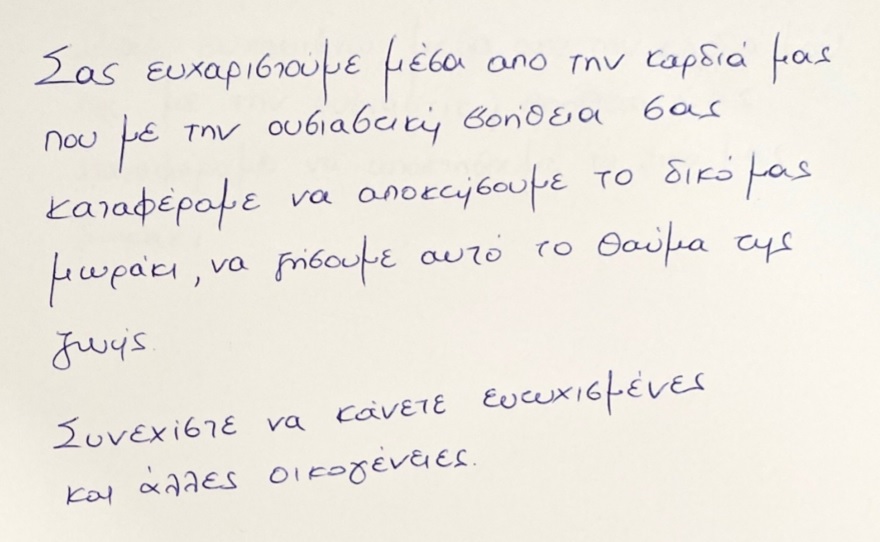 Σας ευχαριστούμε μέσα απο την καρδιά μας
που με την ουσιαστική βοήθεια σας
καταφέραμε να αποκτήσουμε το δικό μας
μωράκι, να ζήσουμε αυτό το θαύμα της
ζωής.
Συνεχίστε να κάνετε ευτυχισμένες
και άλλες οικογένειες.